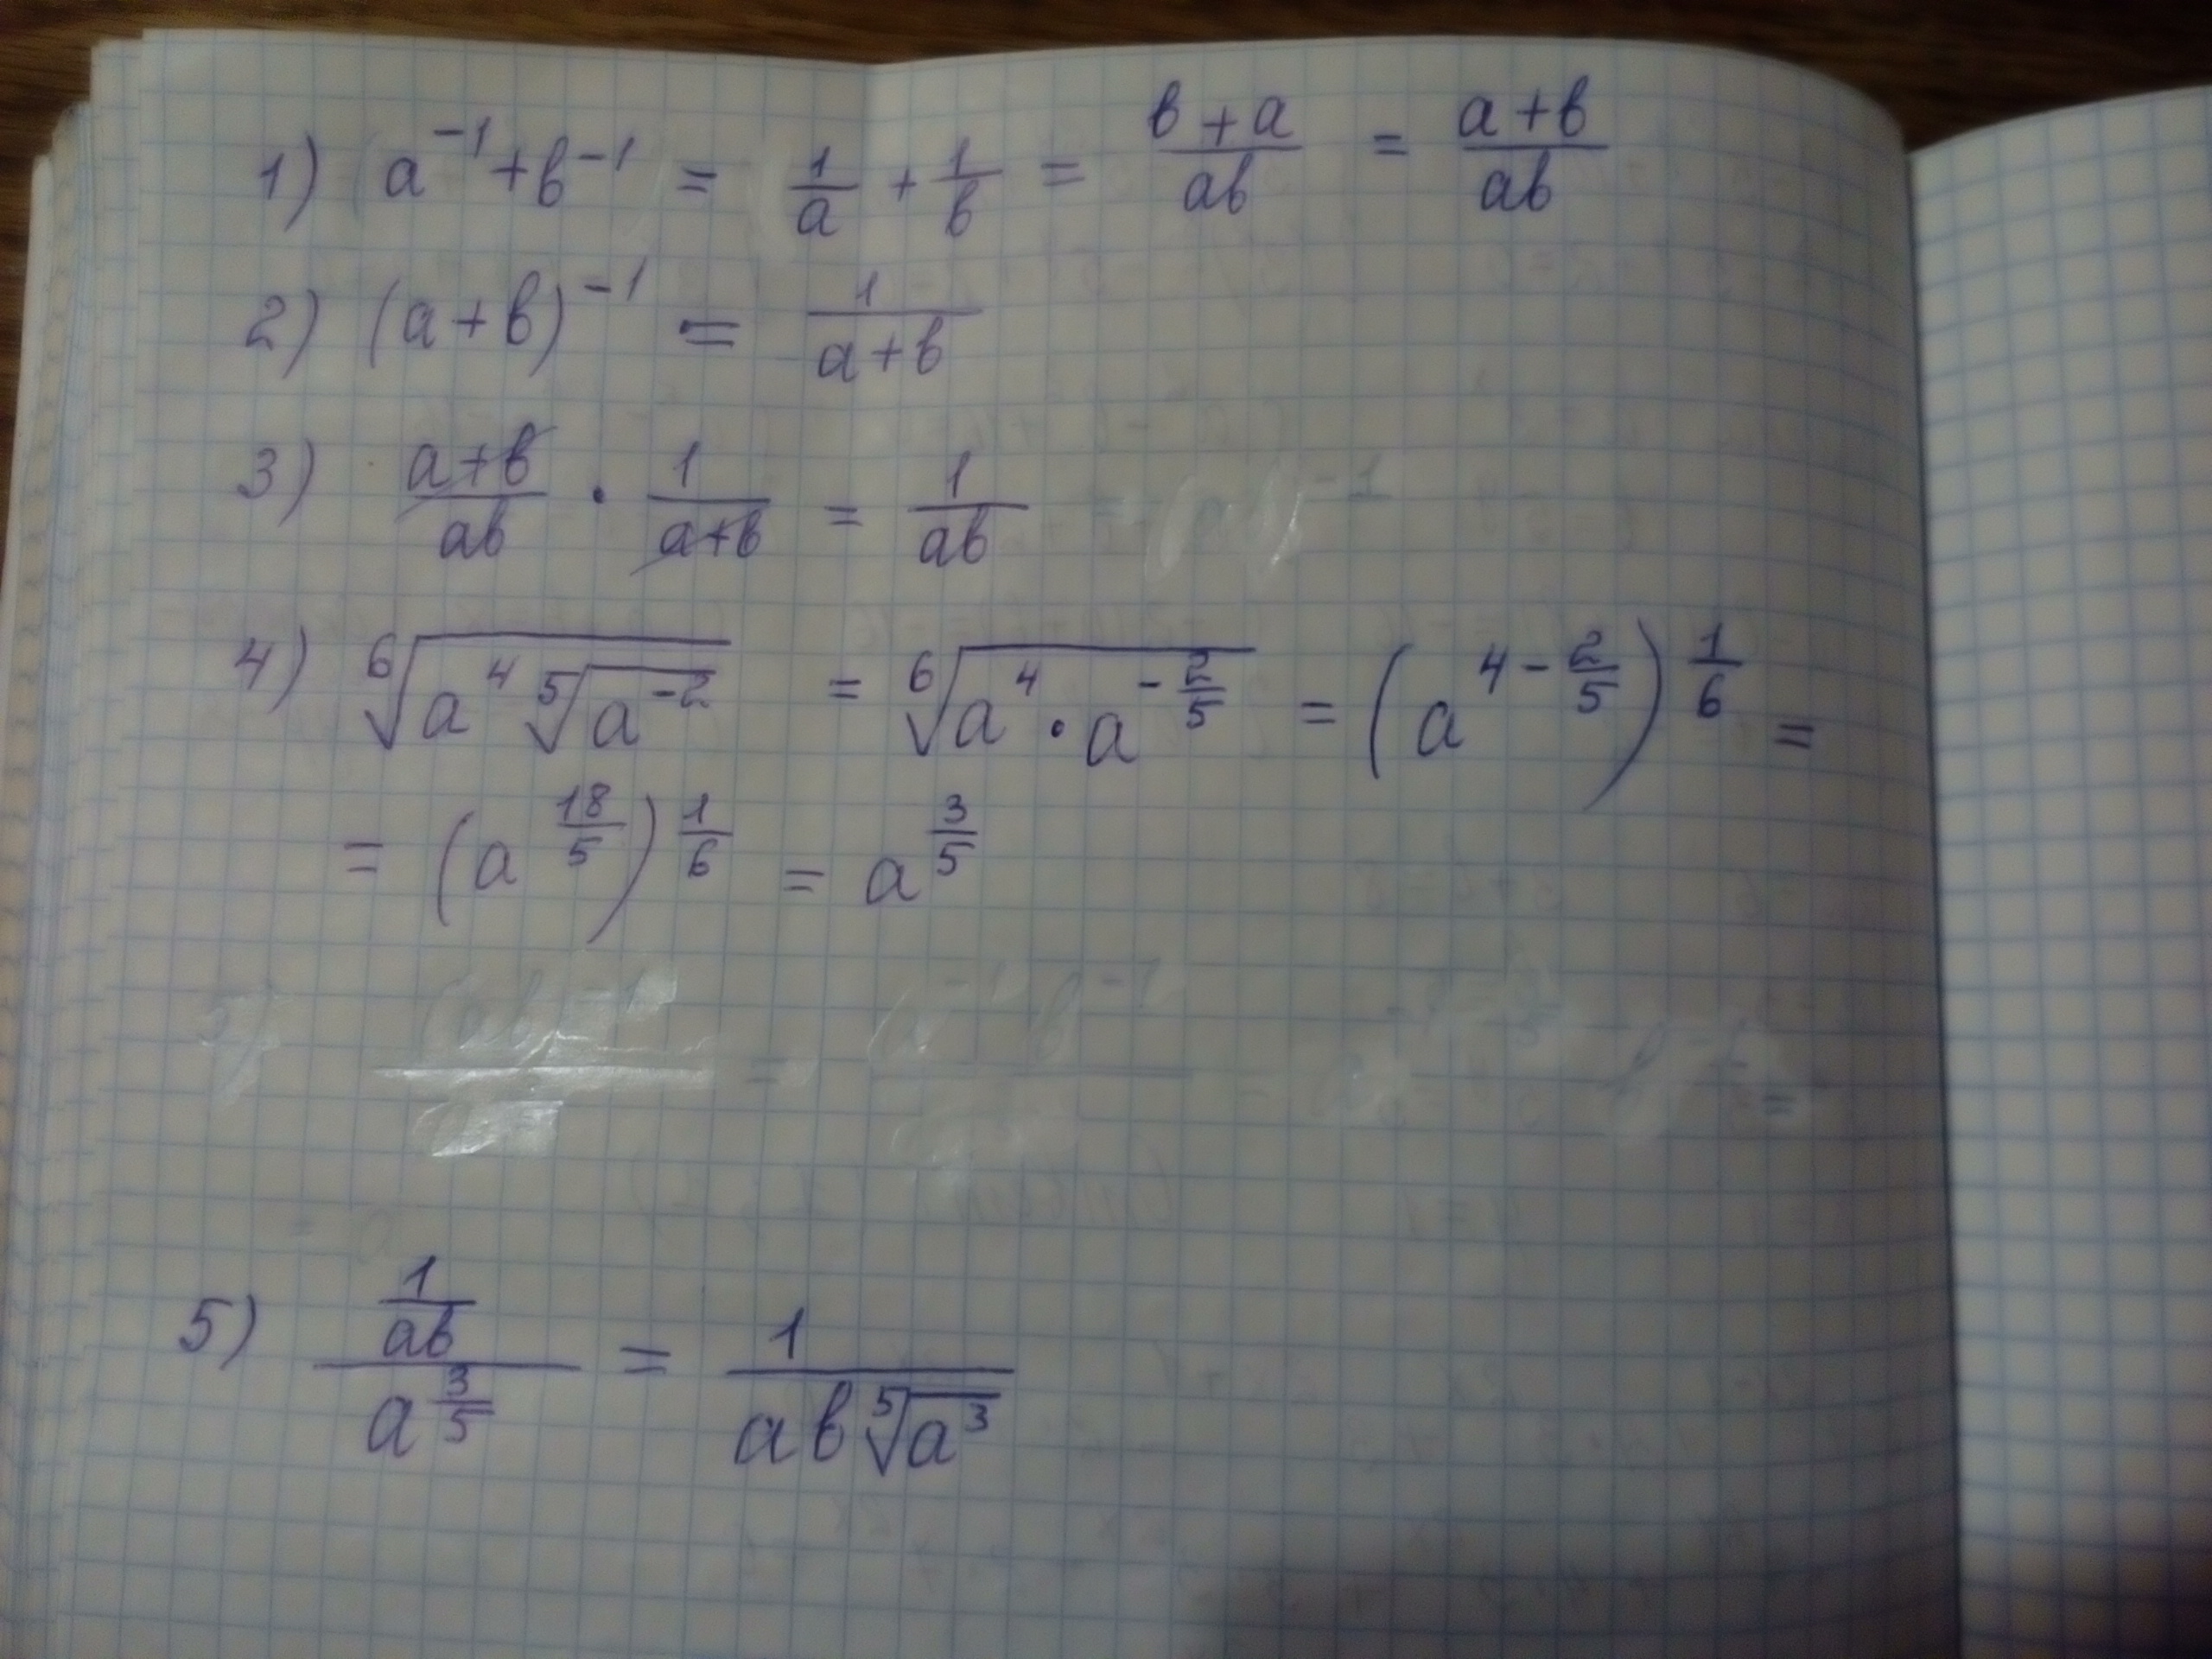 1) a⁻¹ + в⁻¹ = 1/a + 1/в = (в + a)/(aв) = (a + в)/(aв)
2) (a + в)⁻¹ = 1/(a + в)
3) (a + в)/(aв) · 1/(a + в) = 1/(aв)
4) ⁶√(a⁴ ⁵√(a⁻²)) = ⁶√(a⁴ · a^(-2/5)) = (a^(4 - 2/5))^(1/6) =
= (a^(18/5))^(1/6) = a^(3/5)
5) (1/(aв))/(a^(3/5)) = 1/(aв ⁵√(a³))